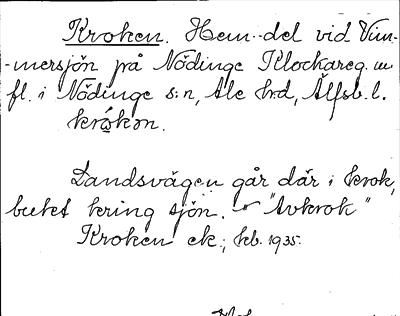 Kroken. Hem.-del vid Vim-
-mersjön på Nödinge Klockareg. m
fl. i Nödinge s:n, Ale hrd, Älfsb. l.
krókən.
Landsvägen går där i krok,
bucht kring sjön. "Avkrok"
Kroken ek.; kb. 1935.